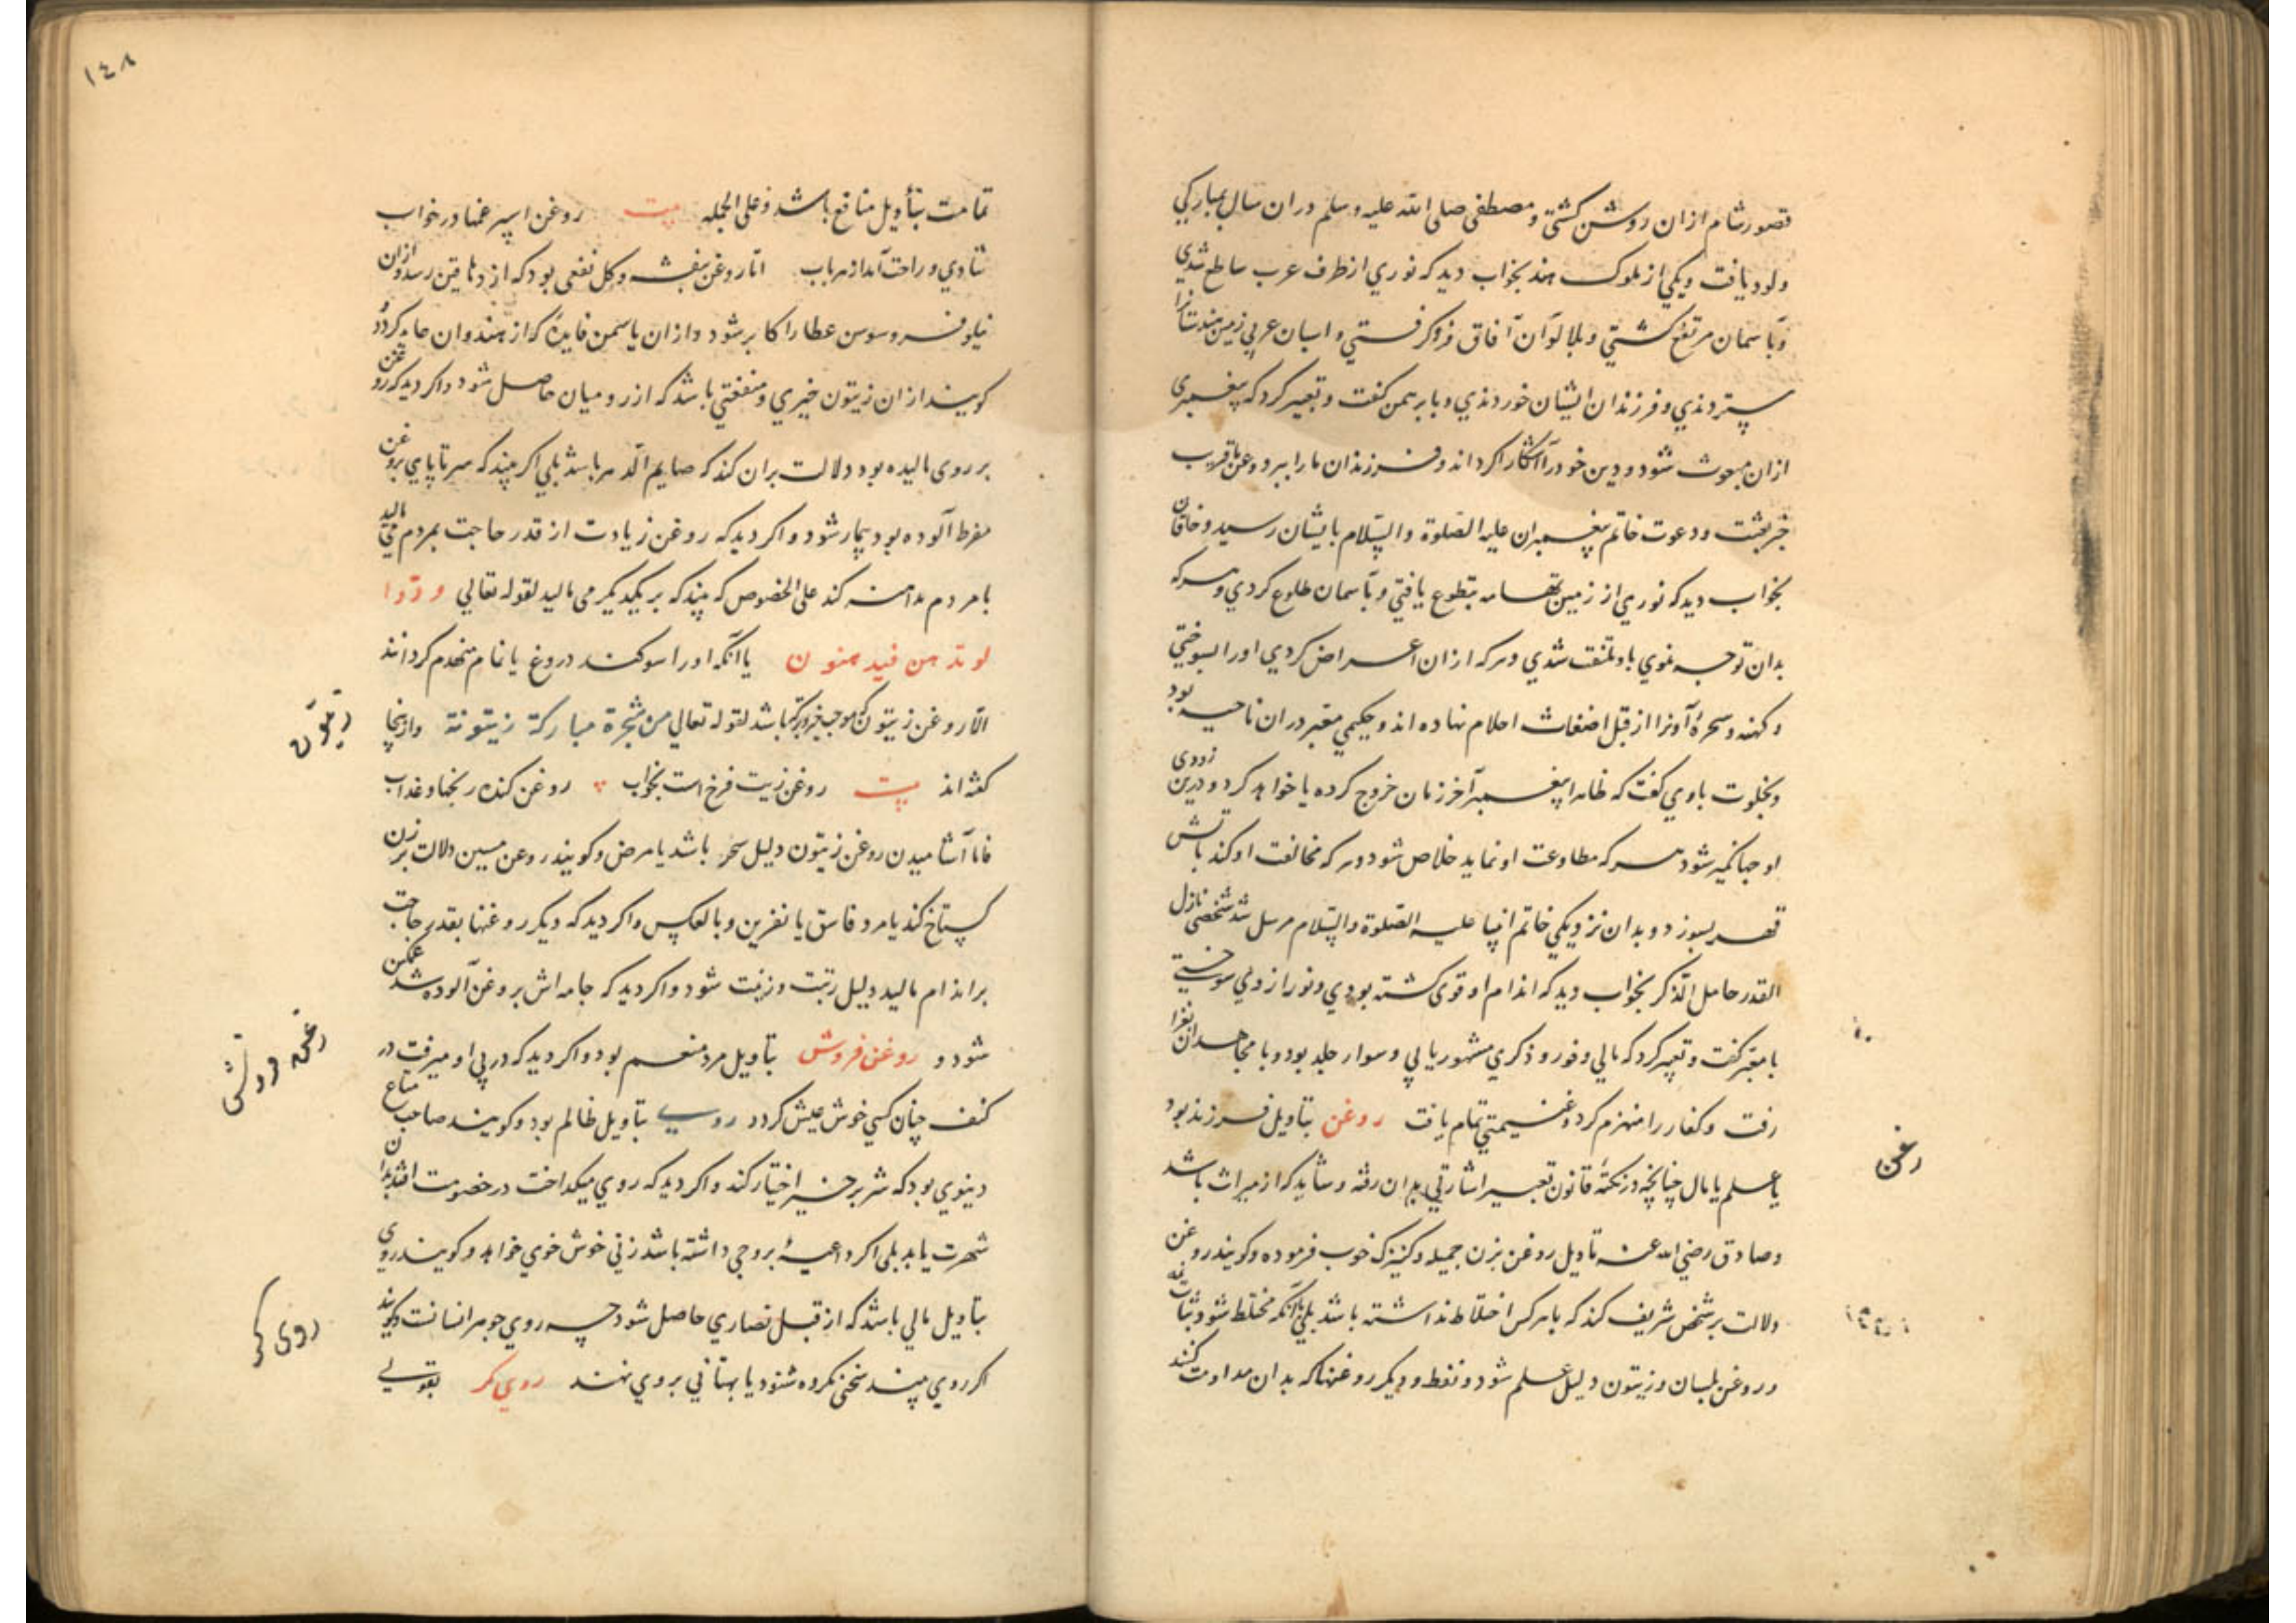 قصور شام ازان روشن کشتی و مصطفی صلی الله علیه وسلم دران سال بمبارکي
ولود یافت ویکي از ملوک هند بخواب دید که نوري از طرف عرب ساطع شدي
وبآسمان مرتفع کشتي وبلالوآن آفاق فروکرفستي واسبان عربي زمین هندستانرا
پستردندي وفرزندان ایشان خوردندي وبا برهمن کفت وتعبیر کرد که پیغمبری
ازان مبعوث شود ودین خود را آشکارا کرداند وفرزندان ما را ببرد وعن قریب
خبر بعثت ودعوت خاتم پیغمبران علیه الصلوة والسلام بایشان رسید وخاقان
بخواب دید که نوري از زمین تهامه بتطوع یافتي وبآسمان طلوع کردي وهرکه
بدان توجه نموي باو ملتفت شدي وهرکه ازان اعراض کردي اورا بسوختي
وکهنه وسحره آونرا از قبل اضغاث احلام نهاده اند وحکیمي معبر دران ناحیه بود
وبخلوت باوي کفت که ظاهرا پیغمبر آخر زمان خروج کرده یا خواهد کرد ودرین زودی
او جهانکیر شود هرکه مطاوعت او نماید خلاص شود وهرکه مخالفت او کند بآتش
قهر بسوزد وبدان نزدیکي خاتم انبیا علیه الصلوة والسلام مرسل شد شخصي نازل
القدر حامل الذکر بخواب دید که اندام او قوی کشته بودي ونور از وي سوختي
با معبر کفت وتعبیر کرد که مالي وفور وذکري مشهور یابي وسوار جلد بود وبا مجاهدان بغزا
رفت وکفار را منهزم کرد وغنیمتي تمام یافت روغن بتاویل فرزند بود
یا علم یا مال چنانچه در نکته قانون تعبیر اشارتي بدان رفته وشاید که از میراث باشد
وصادق رضي الله عنه تاویل روغن بزن جمیله وکنیزک خوب فرموده وکویند روغن
دلالت بر شخص شریف کند که با هرکس اختلاط نداشته باشد بلي آنکه مختلط شود
وروغن بلسان وزیتون دلیل علم شود ونفط ودیکر روغنها که بدان مداومت کنند
رغن
١٤٨
تمامت بتأویل منافع باشد وعلی الجمله بیت روغن اسپر غمها در خواب
شادي وراحت آمد از هر باب اما روغن بنفشه وکل نفعی بود که از دهاقین رسد وازان
نیلوفر وسوسن عطارا کابر شود وازان یاسمن فایده که از هندوان عاید کردد و
کویند ازان زیتون خیري ومنفعتي باشد که از رومیان حاصل شود واکر دید که روغن
بر روی مالیده بود دلالت بران کند که صایم الدهر باشد بلي اکر بیند که سرتاپاي بروغن
مفرط آلوده بود بیمار شود واکر دید که روغن زیادت از قدر حاجت بمردم می مالید
با مردم مداهنه کند علی الخصوص که بیند که بر یکدیکر می مالید لقوله تعالي ودوا
لو تدهن فیدهنون یا آنکه اورا سوکند دروغ یا نمام متهم کردانند
الا روغن زیتون که موجب خیر وبرکة باشد لقوله تعالي من شجرة مبارکة زیتونة وازینجا
کفته اند بیت روغن زیت فرخ است بخواب روغن کنده رنجها وعذاب
فاما آشامیدن روغن زیتون دلیل سحر باشد یا مرض وکویند روغن مسین دلالت بر زن
کستاخ کند یا مرد فاسق یا نفرین وبالعکس واکر دید که دیکر روغنها بقدر حاجت
بر اندام مالید دلیل رتبت وزینت شود واکر دید که جامه اش بروغن آلوده شد غمکین
شود و روغن فروش بتاویل مرد منعم بود واکر دید که در پي او میرفت در
کنف چنان کسي خوش عیش کردد روي بتاویل ظالم بود وکویند صاحب متاع
دینوي بود که شر بر خیر اختیار کند واکر دید که روي میکداخت در خصومت افتد بدان
شهرت یابد بلی اکر داعیه بروجي داشته باشد زني خوش خوي خواهد وکویند روي
بتاویل مالي باشد که از قبل نصاري حاصل شود چه روي جوهر انسانست وکویند
اکر روي بیند سخني نکرده شنود یا بهتاني بروي نهند روي کر بقولي
زیتون
روغن فروش
روی کر